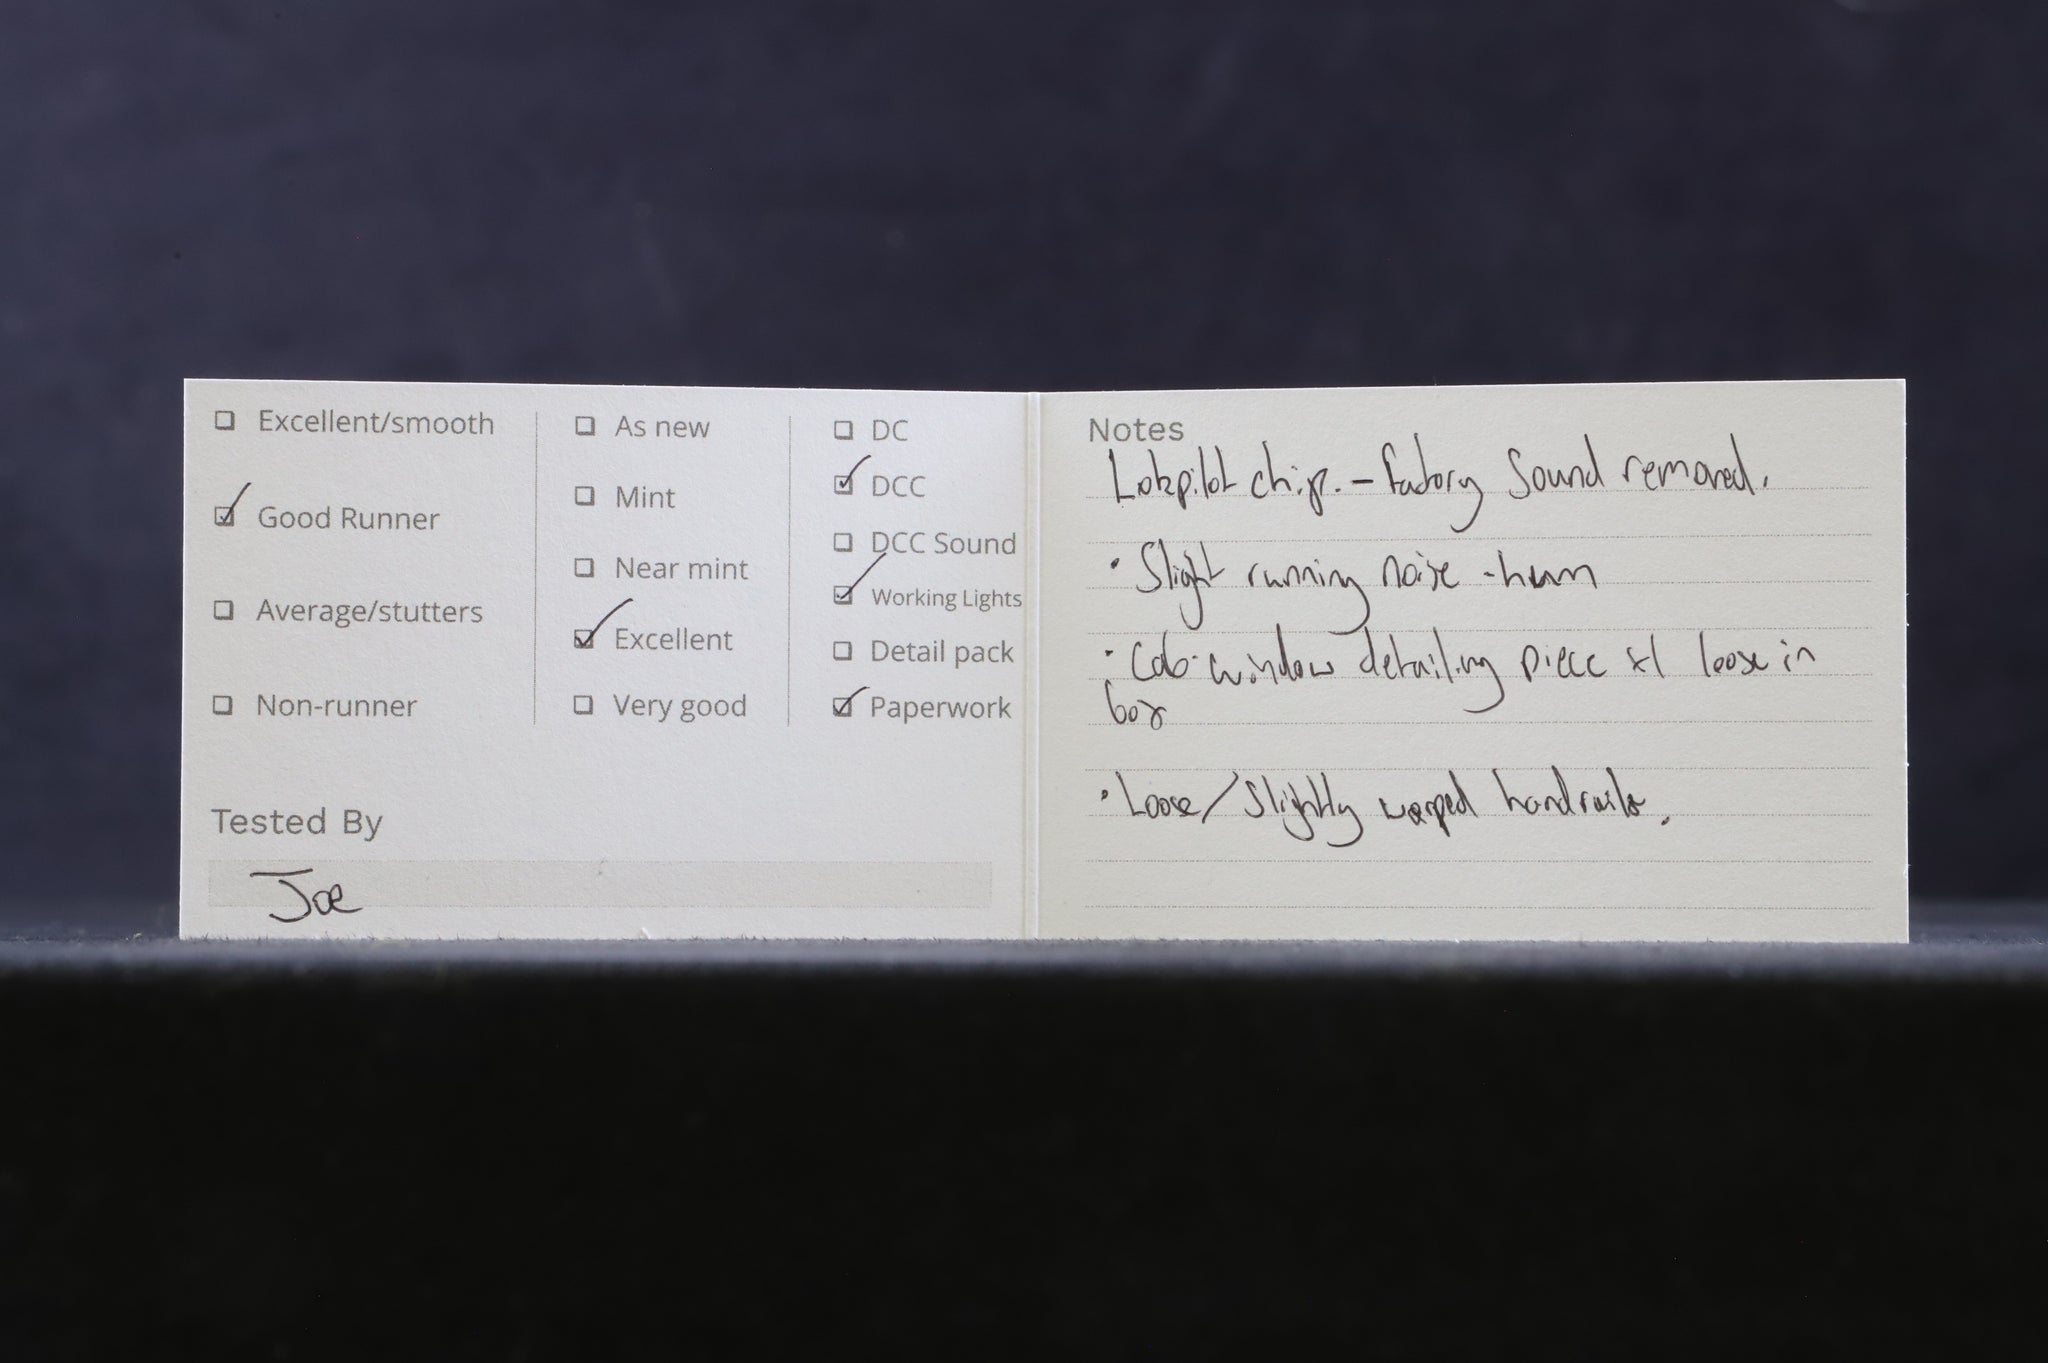 Excellent/smooth
Good Runner
Average/stutters
Non-runner
As new
Mint
Near mint
Excellent
Very good
DC
DCC
DCC Sound
Working Lights
Detail pack
Paperwork
Tested By
Joe
Notes
Lokpilot chip. - factory Sound removed.
• Slight running noise - hum
• Cab window detailing piece x1 loose in
box
• Loose/Slightly warped handrails.